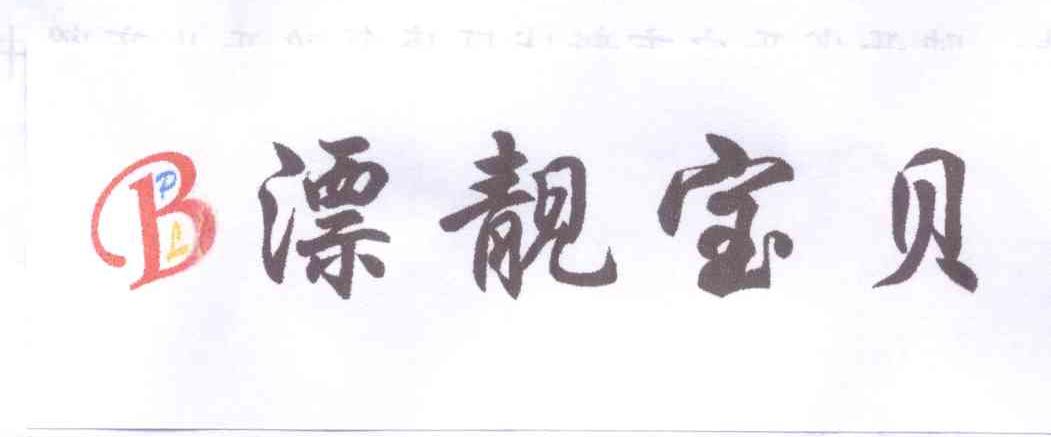 B P L 漂靓宝贝